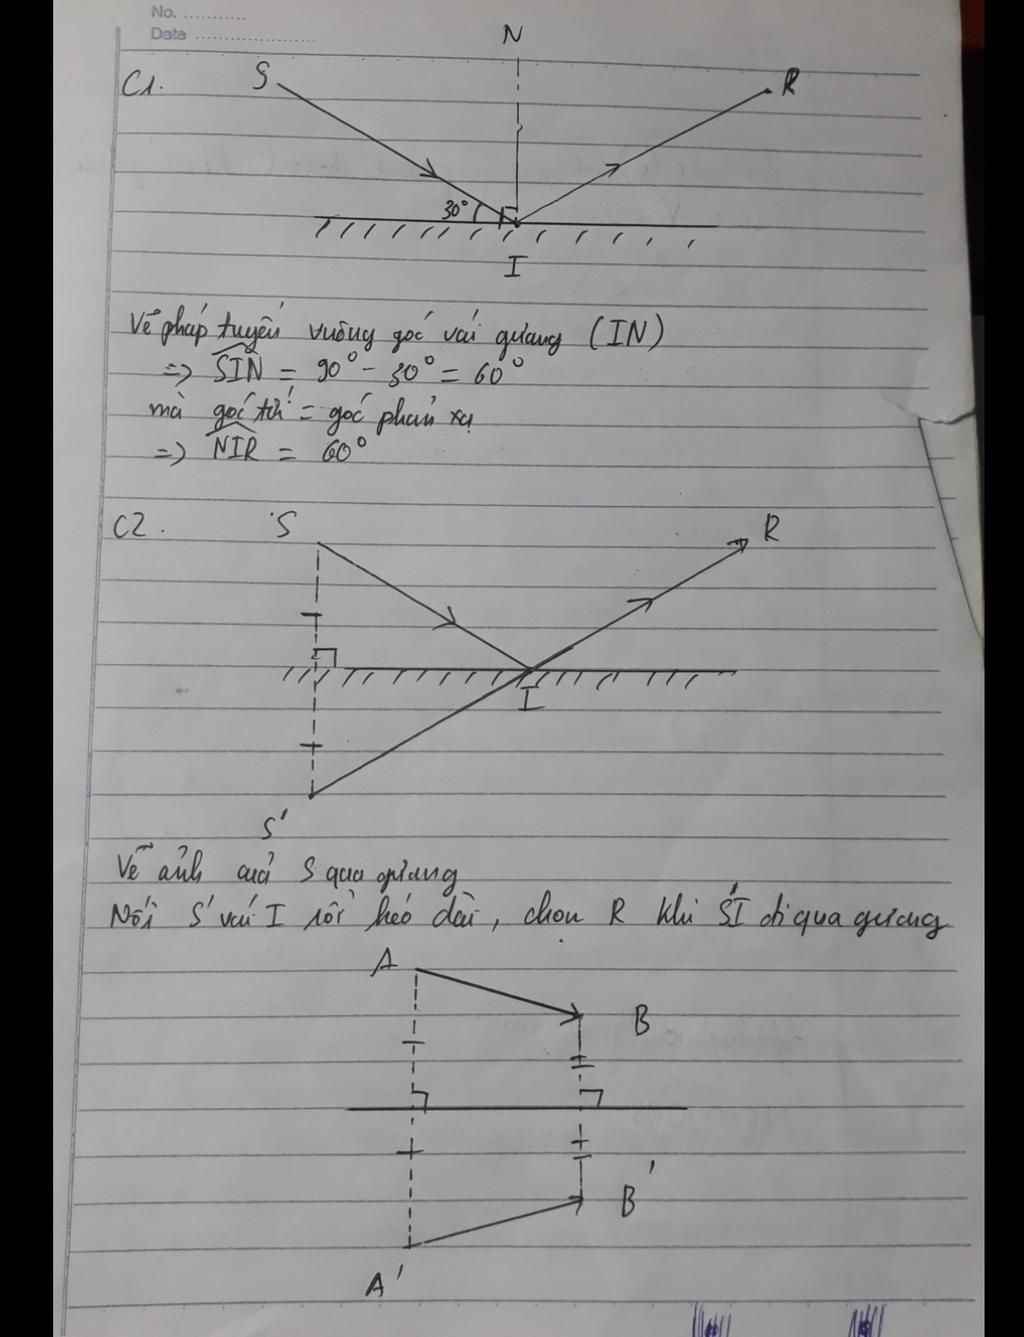 No. ...........
Date .....................
N
C1.
S
R
30°
I
Vẽ pháp tuyến vuông góc với gương (IN)
=> SIN = 90° - 30° = 60°
mà góc tới = góc phản xạ
=> NIR = 60°
C2.
S
R
I
S'
Vẽ ảnh của S qua gương
Nối S' với I rồi kéo dài, chọn R khi S'I đi qua gương
A
B
B'
A'